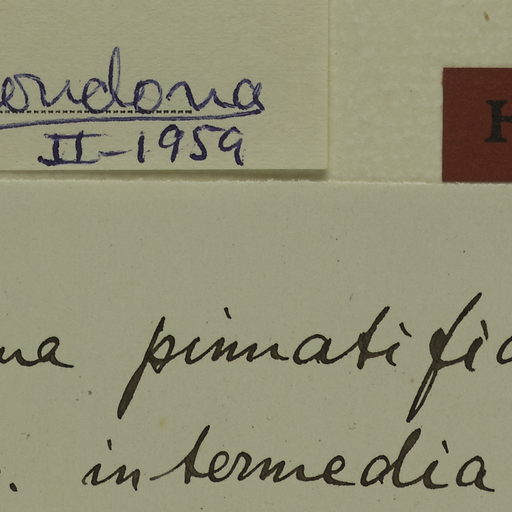 ondona
II-1959
H
na pinnatific
. intermedia